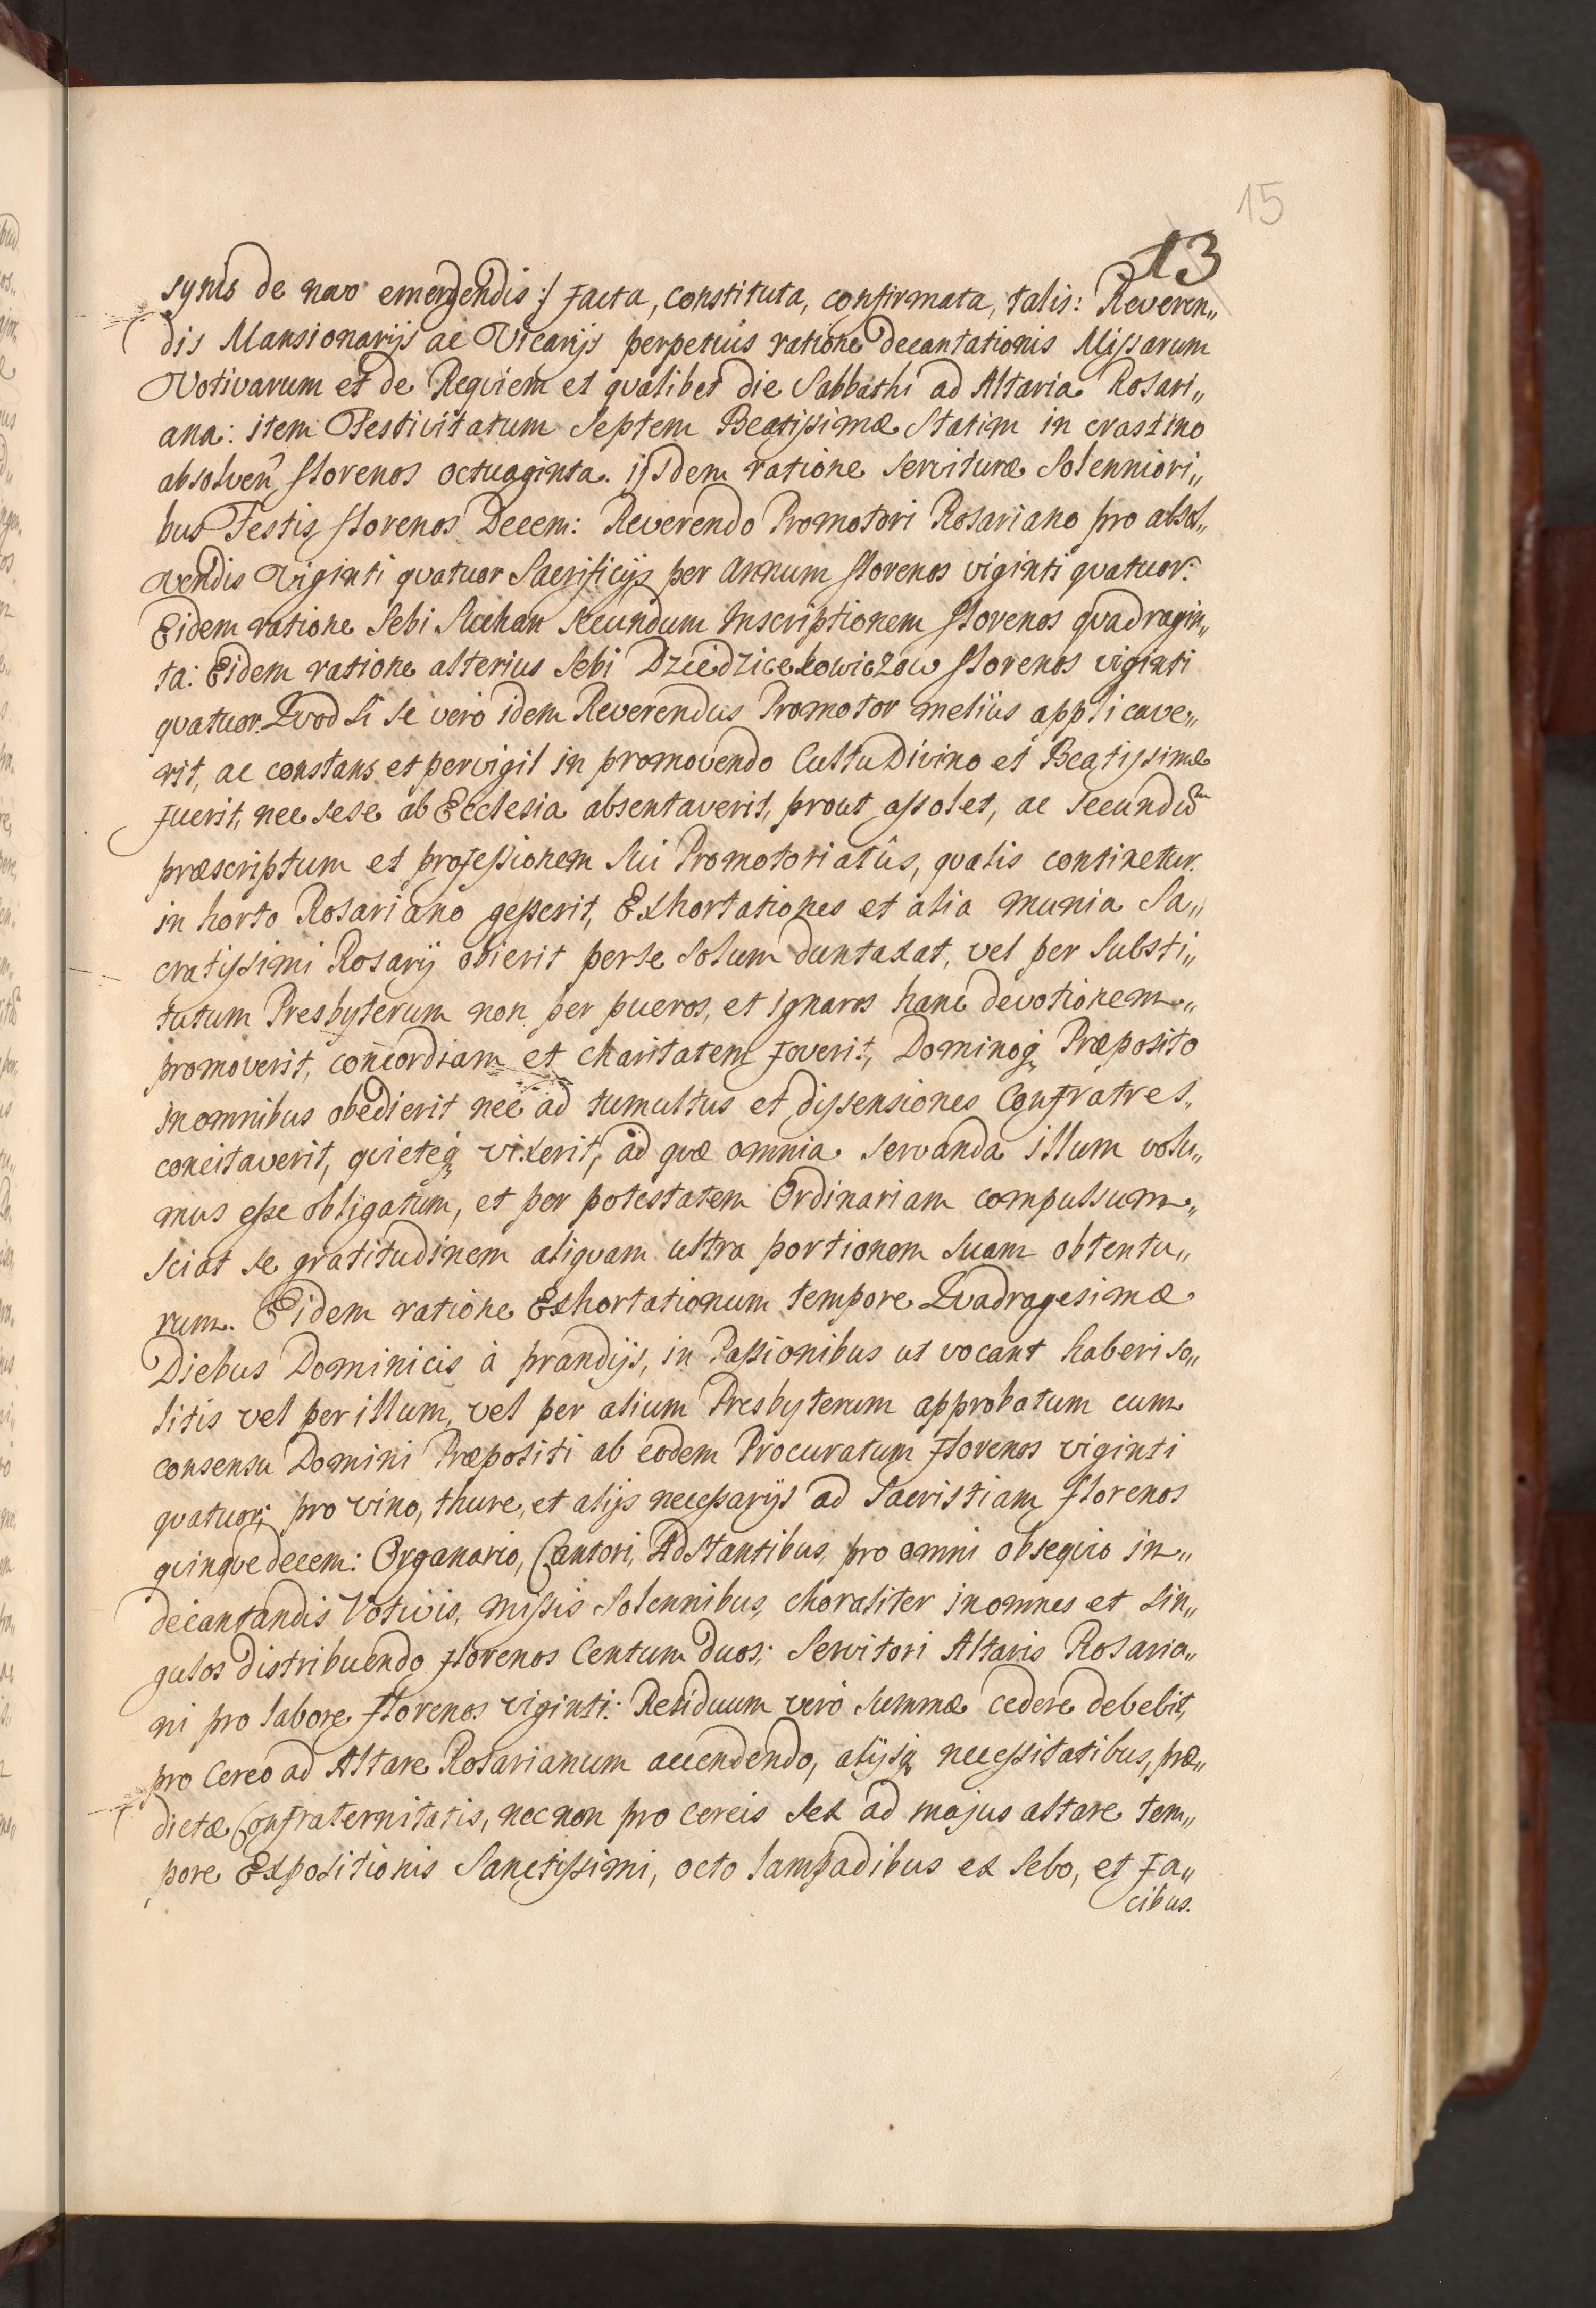 15
13
synis de novo emergendis :/ facta, constituta, confirmata, talis: Reveren„
dis Mansionarijs ac Vicarijs perpetuis ratione decantationis Missarum
Votivarum et de Requiem et qualibet die Sabbathi ad Altaria Rosari„
ana: item Festivitatum Septem Beatissimæ Statim in crastino
absolven florenos octuaginta. ijsdem ratione servituræ Solenniori„
bus Festis florenos Decem: Reverendo Promotori Rosariano pro absol„
vendis Viginti quatuor Sacrificijs per Annum florenos viginti quatuor:
Eidem ratione Sebi secundum Inscriptionem florenos quadragin„
ta: Eidem ratione alterius Sebi florenos viginti
quatuor. Quod Si Se verò idem Reverendus Promotor meliùs applicave„
rit, ac constans et pervigil in promovendo Cultu Divino et Beatissimæ
fuerit, nec sese ab Ecclesia absentaverit, prout assolet, ac secundũ
præscriptum et professionem Sui Promotoriatûs, qualis continetur
in horto Rosariano gesserit, Exhortationes et alia munia Sa„
cratissimi Rosarij obierit per se Solum duntaxat, vel per Substi„
tutum Presbyterum non per pueros, et ignaros hanc devotionem„
promoverit, concordiam et charitatem foverit, Dominoq, Præposito
in omnibus obedierit nec ad tumultus et dissensiones Confratres„
concitaverit, quieteq, vixerit, ad quæ omnia servanda illum volu„
mus esse obligatum, et per potestatem Ordinariam compulsum„
Sciat se gratitudinem aliquam ultra portionem Suam obtentu„
rum. Eidem ratione Exhortationum tempore Quadragesimæ
Diebus Dominicis à prandijs, in Passionibus ut vocant haberi so„
litis vel per illum, vel per alium Presbyterum approbatum cum
consensu Domini Præpositi ab eodem Procuratum florenos viginti
quatuor; pro vino, thure, et alijs necessarijs ad Sacristiam florenos
quinquedecem: Organario, Cantori, Adstantibus, pro omni obsequio in„
decantandis Votivis, missis Solennibus, choraliter in omnes et Sin„
gulos distribuendo florenos Centum duos; Servitori Altaris Rosaria„
ni pro labore florenos viginti: Residuum verò Summæ cedere debebit,
pro Cereo ad Altare Rosarianum accendendo, alijsq, necessitatibus, præ„
dictæ Confraternitatis, nec non pro cereis Sex ad majus altare tem„
pore Expositionis Sanctissimi, octo lampadibus ex Sebo, et fa„
cibus.